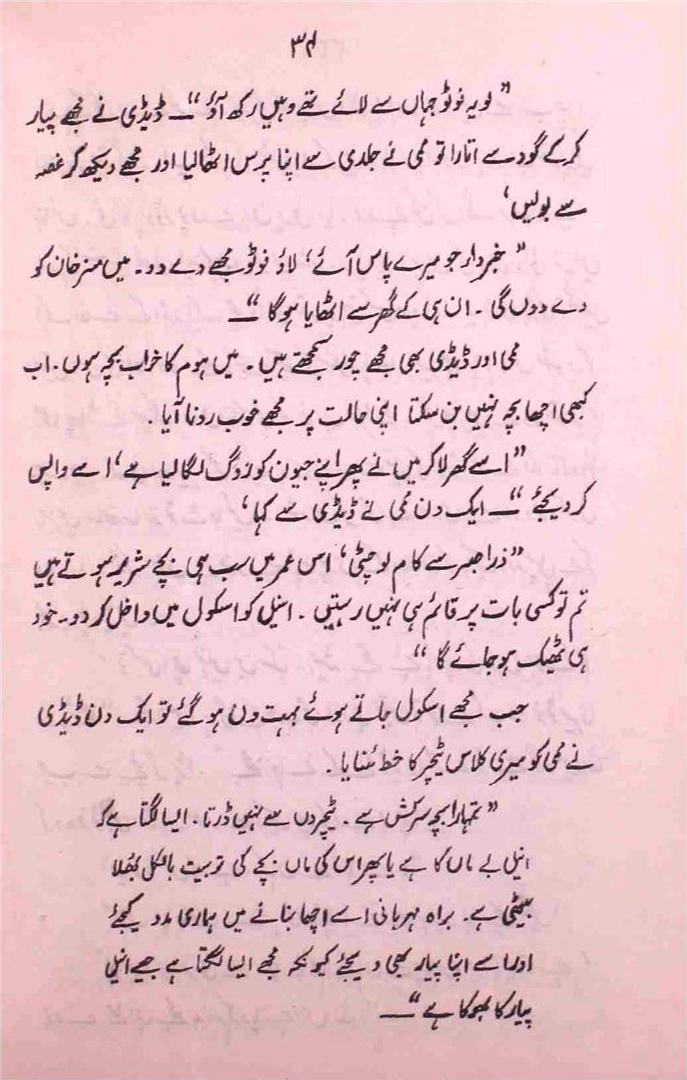 ۳۴
”لو یہ فوٹو جہاں سے لائے تھے وہیں رکھ آؤ“۔ ڈیڈی نے مجھے پیار
کر کے گود سے اتارا تو ممی نے جلدی سے اپنا پرس اٹھا لیا اور مجھے دیکھ کر غصہ
سے بولیں‘
”خبردار جو میرے پاس آئے‘ لاؤ فوٹو مجھے دے دو۔ میں مسز خان کو
دے دوں گی۔ ان ہی کے گھر سے اٹھایا ہو گا“۔
ممی اور ڈیڈی بھی مجھے چور سمجھتے ہیں۔ میں ہوم کا خراب بچہ ہوں۔ اب
کبھی اچھا بچہ نہیں بن سکتا اپنی حالت پر مجھے خوب رونا آیا۔
”اسے گھر لا کر میں نے پھر اپنے جیون کو روگ لگا لیا ہے‘ اسے واپس
کر دیجئے“۔ ایک دن ممی نے ڈیڈی سے کہا‘
”ذرا صبر سے کام لو چٹی‘ اس عمر میں سب ہی بچے شریر ہوتے ہیں
تم تو کسی بات پر قائم ہی نہیں رہتیں۔ انیل کو اسکول میں داخل کر دو۔ خود
ہی ٹھیک ہو جائے گا“
جب مجھے اسکول جاتے ہوئے بہت دن ہو گئے تو ایک دن ڈیڈی
نے ممی کو میری کلاس ٹیچر کا خط سنایا۔
”تمہارا بچہ سرکش ہے۔ ٹیچروں سے نہیں ڈرتا۔ ایسا لگتا ہے کہ
انیل بے ماں کا ہے یا پھر اس کی ماں بچے کی تربیت بالکل بھلا
بیٹھی ہے۔ براہ مہربانی اسے اچھا بنانے میں ہماری مدد کیجئے
اور اسے اپنا پیار بھی دیجئے کیونکہ مجھے ایسا لگتا ہے جیسے انیل
پیار کا بھوکا ہے“۔